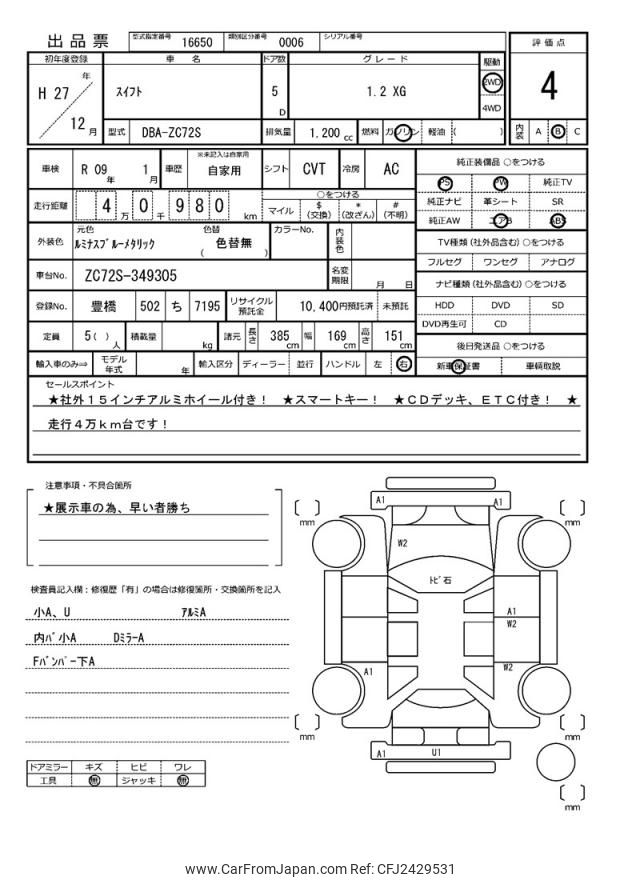 出品票 型式指定番号 16650 類別区分番号 0006 シリアル番号
初年度登録 車名 ドア数 グレード 駆動 評価点
H 27 年 12 月 スイフト 5 D 1.2 XG 2WD 4WD 4
型式 DBA-ZC72S 排気量 1,200 cc 燃料 ガソリン 軽油 ( ) 内装 A B C
車検 R 09 年 1 月 車歴 ※未記入は自家用 自家用 シフト CVT 冷房 AC
走行距離 4 万 0 千 9 8 0 km ○をつける マイル $ (交換) * (改ざん) # (不明)
外装色 元色 ルミナスブルーメタリック 色替 ( 色替無 ) カラーNo. 内装色
車台No. ZC72S-349305 名変期限 月 日
登録No. 豊橋 502 ち 7195 リサイクル預託金 10,400円預託済 未預託
定員 5( ) 人 積載量 kg 諸元 長さ 385 cm 幅 169 cm 高さ 151 cm
輸入車のみ⇒ モデル年式 年 輸入区分 ディーラー 並行 ハンドル 左 右
純正装備品 ○をつける
PS PW 純正TV
純正ナビ 革シート SR
純正AW エアB ABS
TV種類 (社外品含む) ○をつける
フルセグ ワンセグ アナログ
ナビ種類 (社外品含む) ○をつける
HDD DVD SD
DVD再生可 CD
後日発送品 ○をつける
新車保証書 車輌取説
セールスポイント
★社外15インチアルミホイール付き! ★スマートキー! ★CDデッキ、ETC付き! ★
走行4万km台です!
注意事項・不具合箇所
★展示車の為、早い者勝ち
検査員記入欄:修復歴「有」の場合は修復箇所・交換箇所を記入
小A、U アルミA
内バ小A DミラーA
Fバンパー下A
ドアミラー キズ ヒビ ワレ
工具 無 ジャッキ 無
A1 A1
mm mm
W2
トビ石
A1
W2
W2
A1
mm mm
A1 U1
mm
www.CarFromJapan.com Ref: CFJ2429531